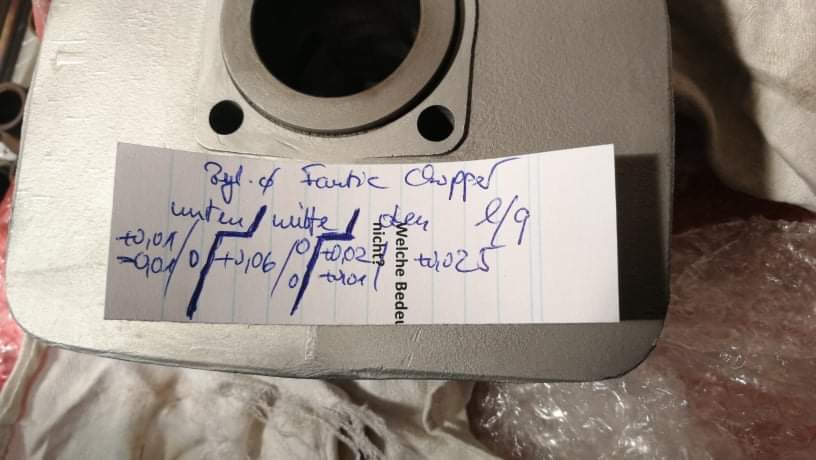 Zyl. ø Fantic Chopper
unten / mitte / oben l/q
+0,01 / 0 +0,06 / 0 +0,02 / +0,025
-0,01 0 +0,01
Welche Bedeu
nicht?